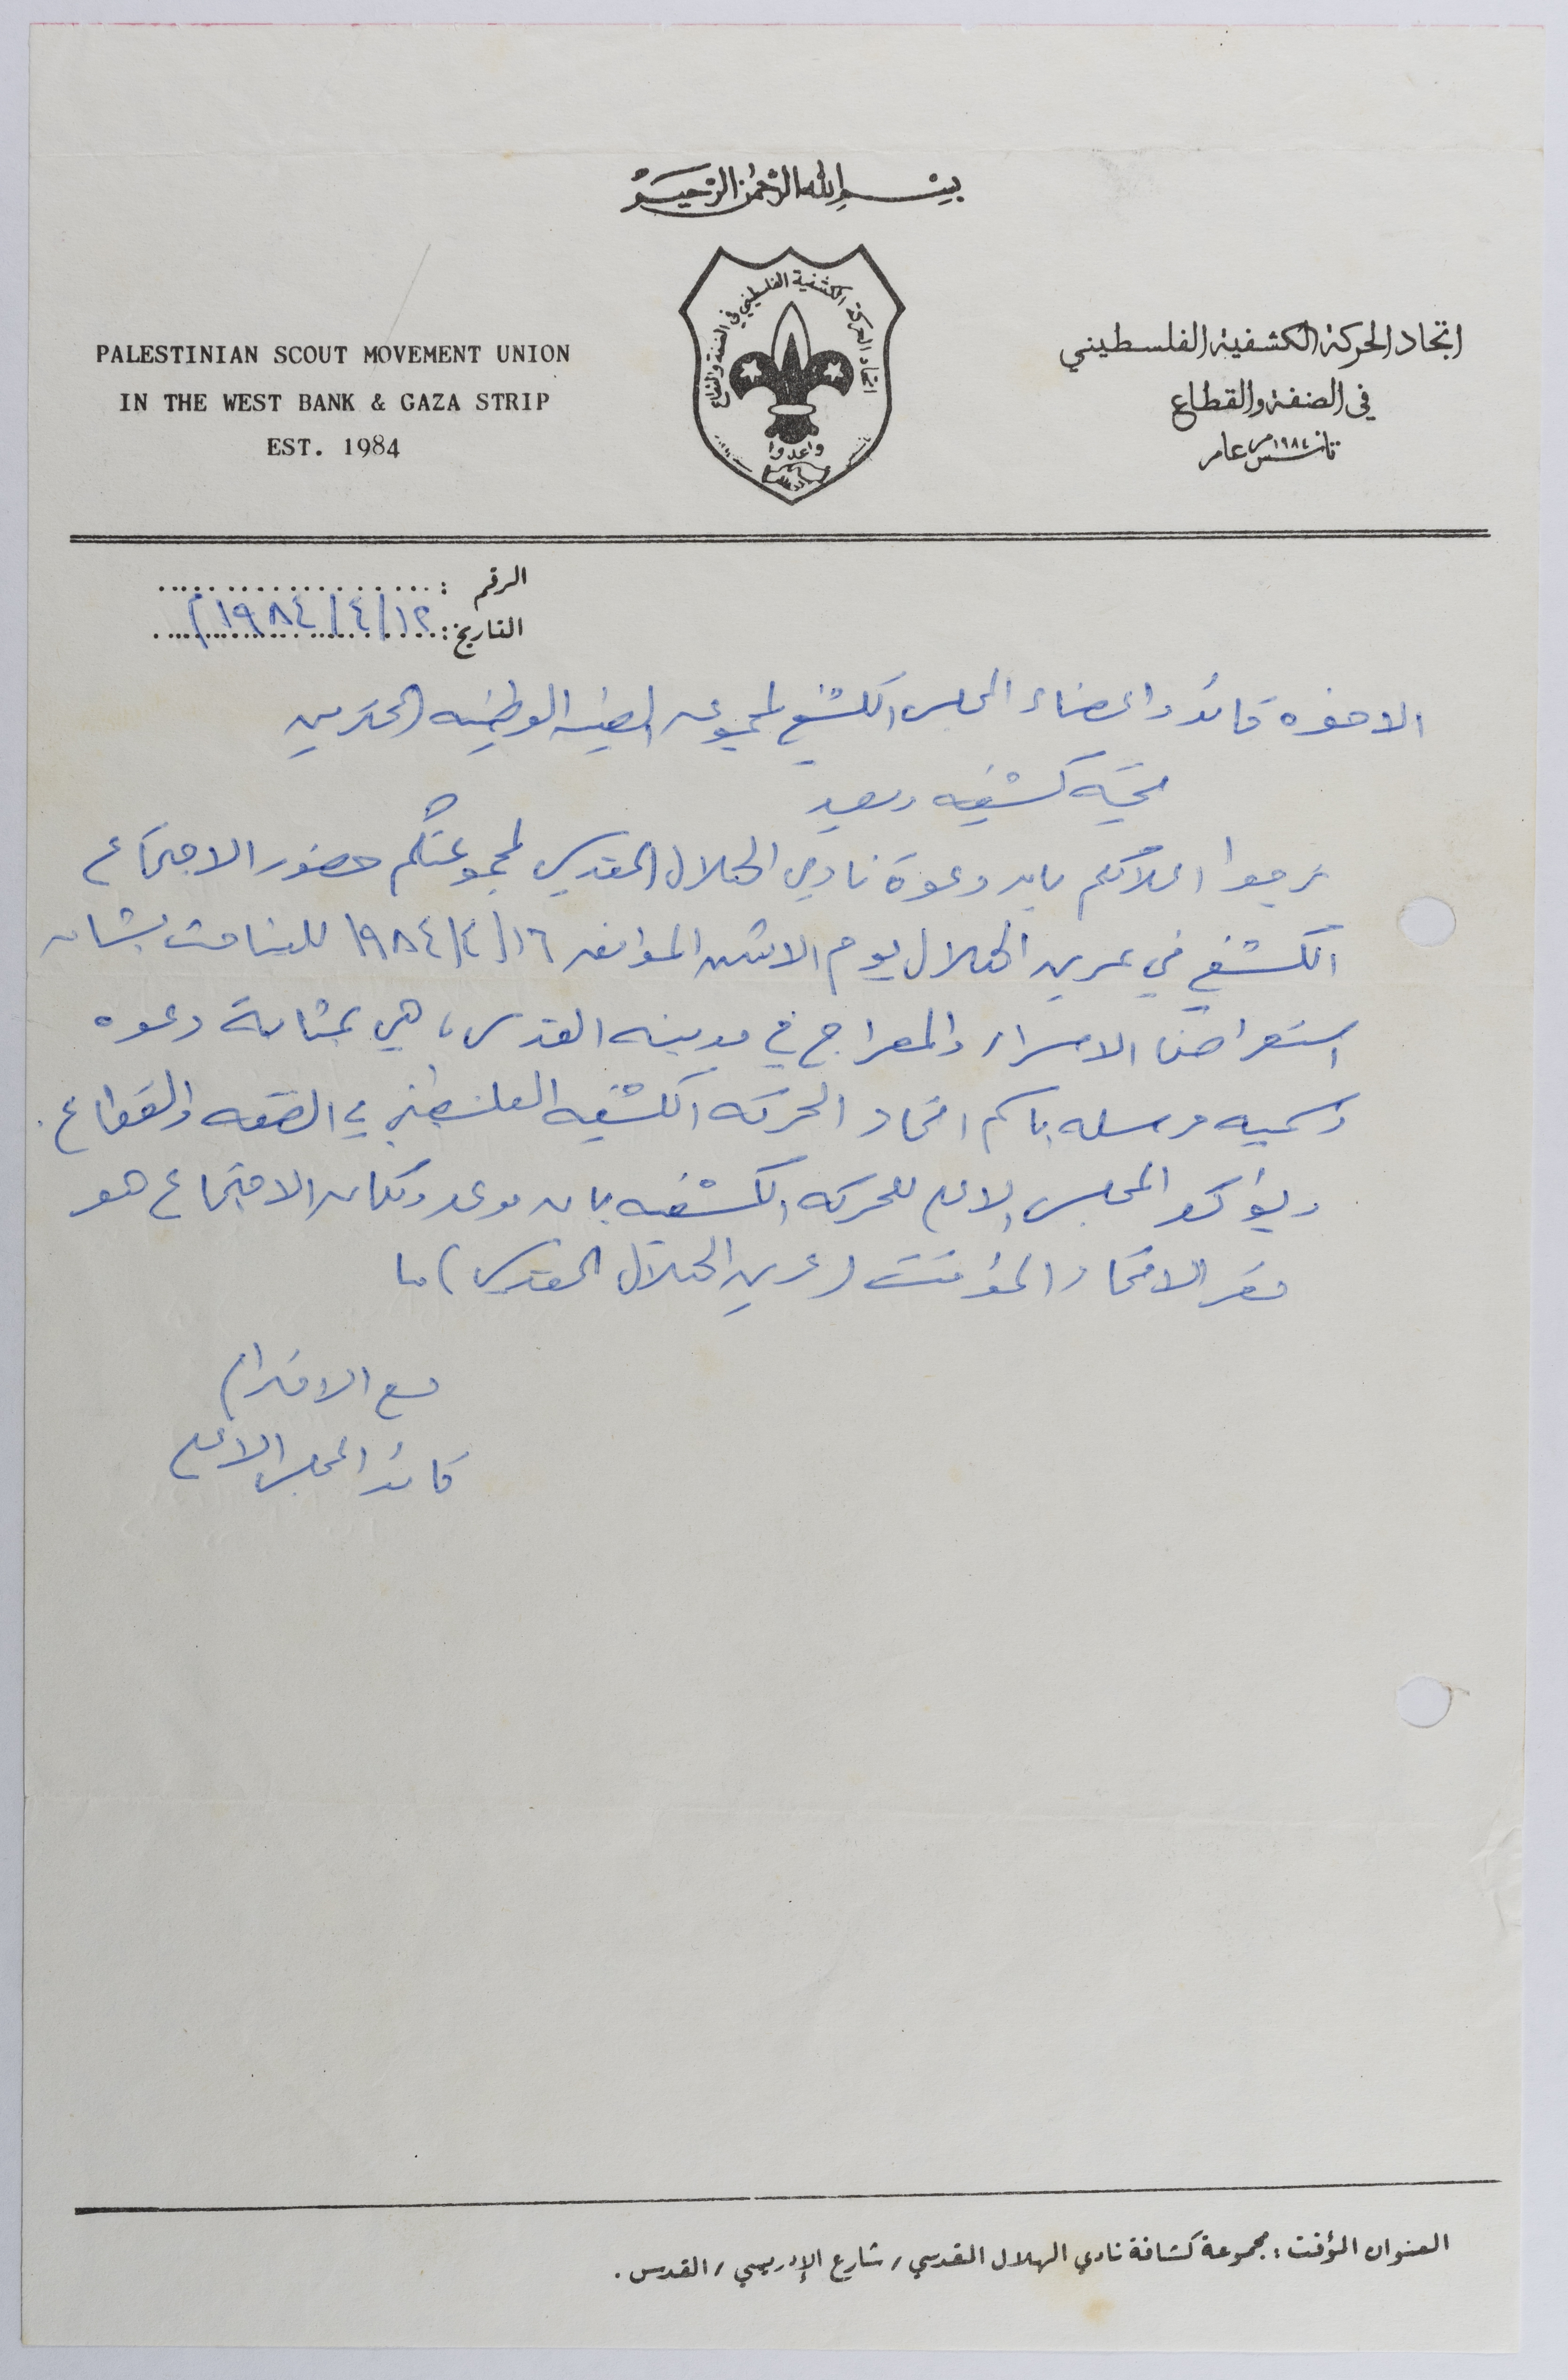 بسم الله الرحمن الرحيم
PALESTINIAN SCOUT MOVEMENT UNION
IN THE WEST BANK & GAZA STRIP
EST. 1984
اتحاد الحركة الكشفية الفلسطيني في الضفة والقطاع
واعدوا
القدس
اتحاد الحركة الكشفية الفلسطيني
في الضفة والقطاع
تأسس عام ١٩٨٤م
الرقم :
التاريخ: ١٢/٤/١٩٨٤م
الاخوه قائد واعضاء المجلس الكشفي لمجموعه الوطنيه المحترمين
تحيه كشفيه وبعد
نرجوا اعلامكم بان دعوة نادي الهلال المقدسي لمجموعتكم حضور الاجتماع
الكشفي في عرين الهلال يوم الاثنين الموافق ١٦/٤/١٩٨٤ للتباحث بشان
استعراض الاسراء والمعراج في مدينه القدس، هي بمثابة دعوه
رسميه مرسله باسم اتحاد الحركه الكشفيه الفلسطيني في الضفه والقطاع .
ويؤكد المجلس الاعلى للحركه الكشفيه بان موعد ومكان الاجتماع هو
مقر الاتحاد المؤقت (عرين الهلال المقدسي)
مع الاحترام
قائد المجلس الاعلى
العنوان المؤقت : مجموعة كشافة نادي الهلال المقدسي / شارع الإدريسي / القدس .